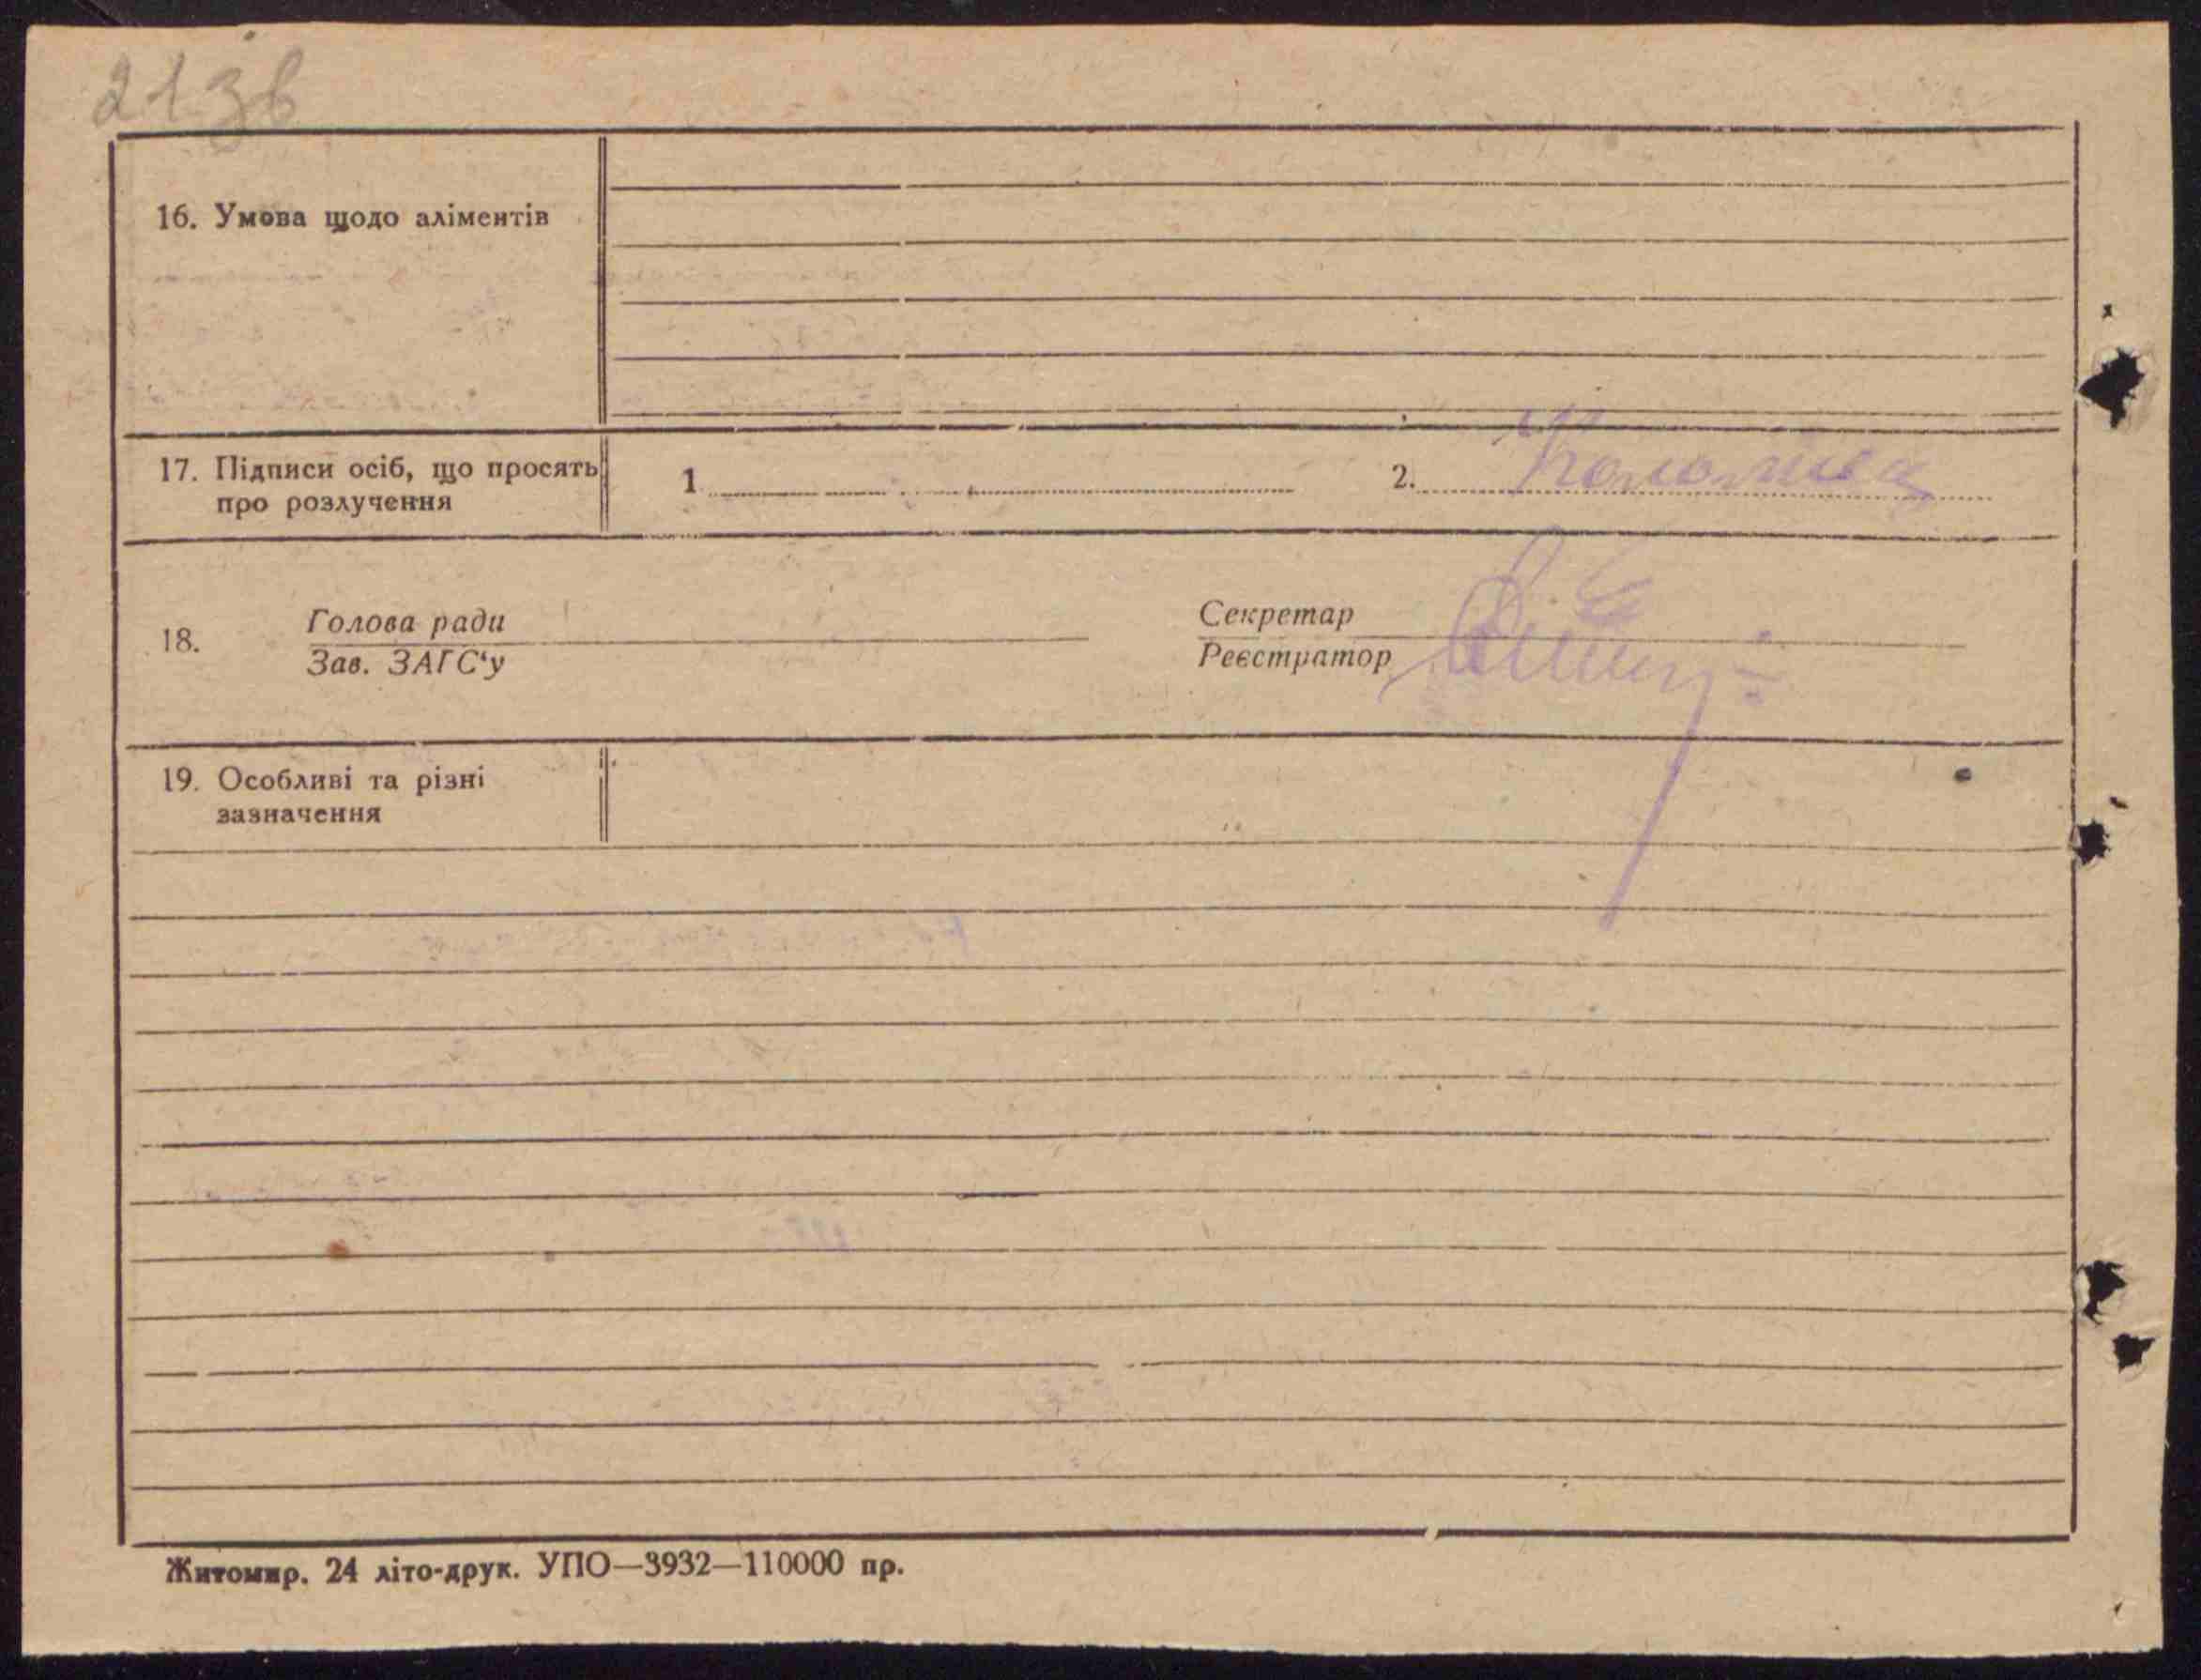 21 зв
16. Умова щодо аліментів
17. Підписи осіб, що просять
про розлучення
1
2.
18.
Голова ради
Зав. ЗАГС‘у
Секретар
Реєстратор
19. Особливі та різні
зазначення
Житомир. 24 літо-друк. УПО—3932—110000 пр.